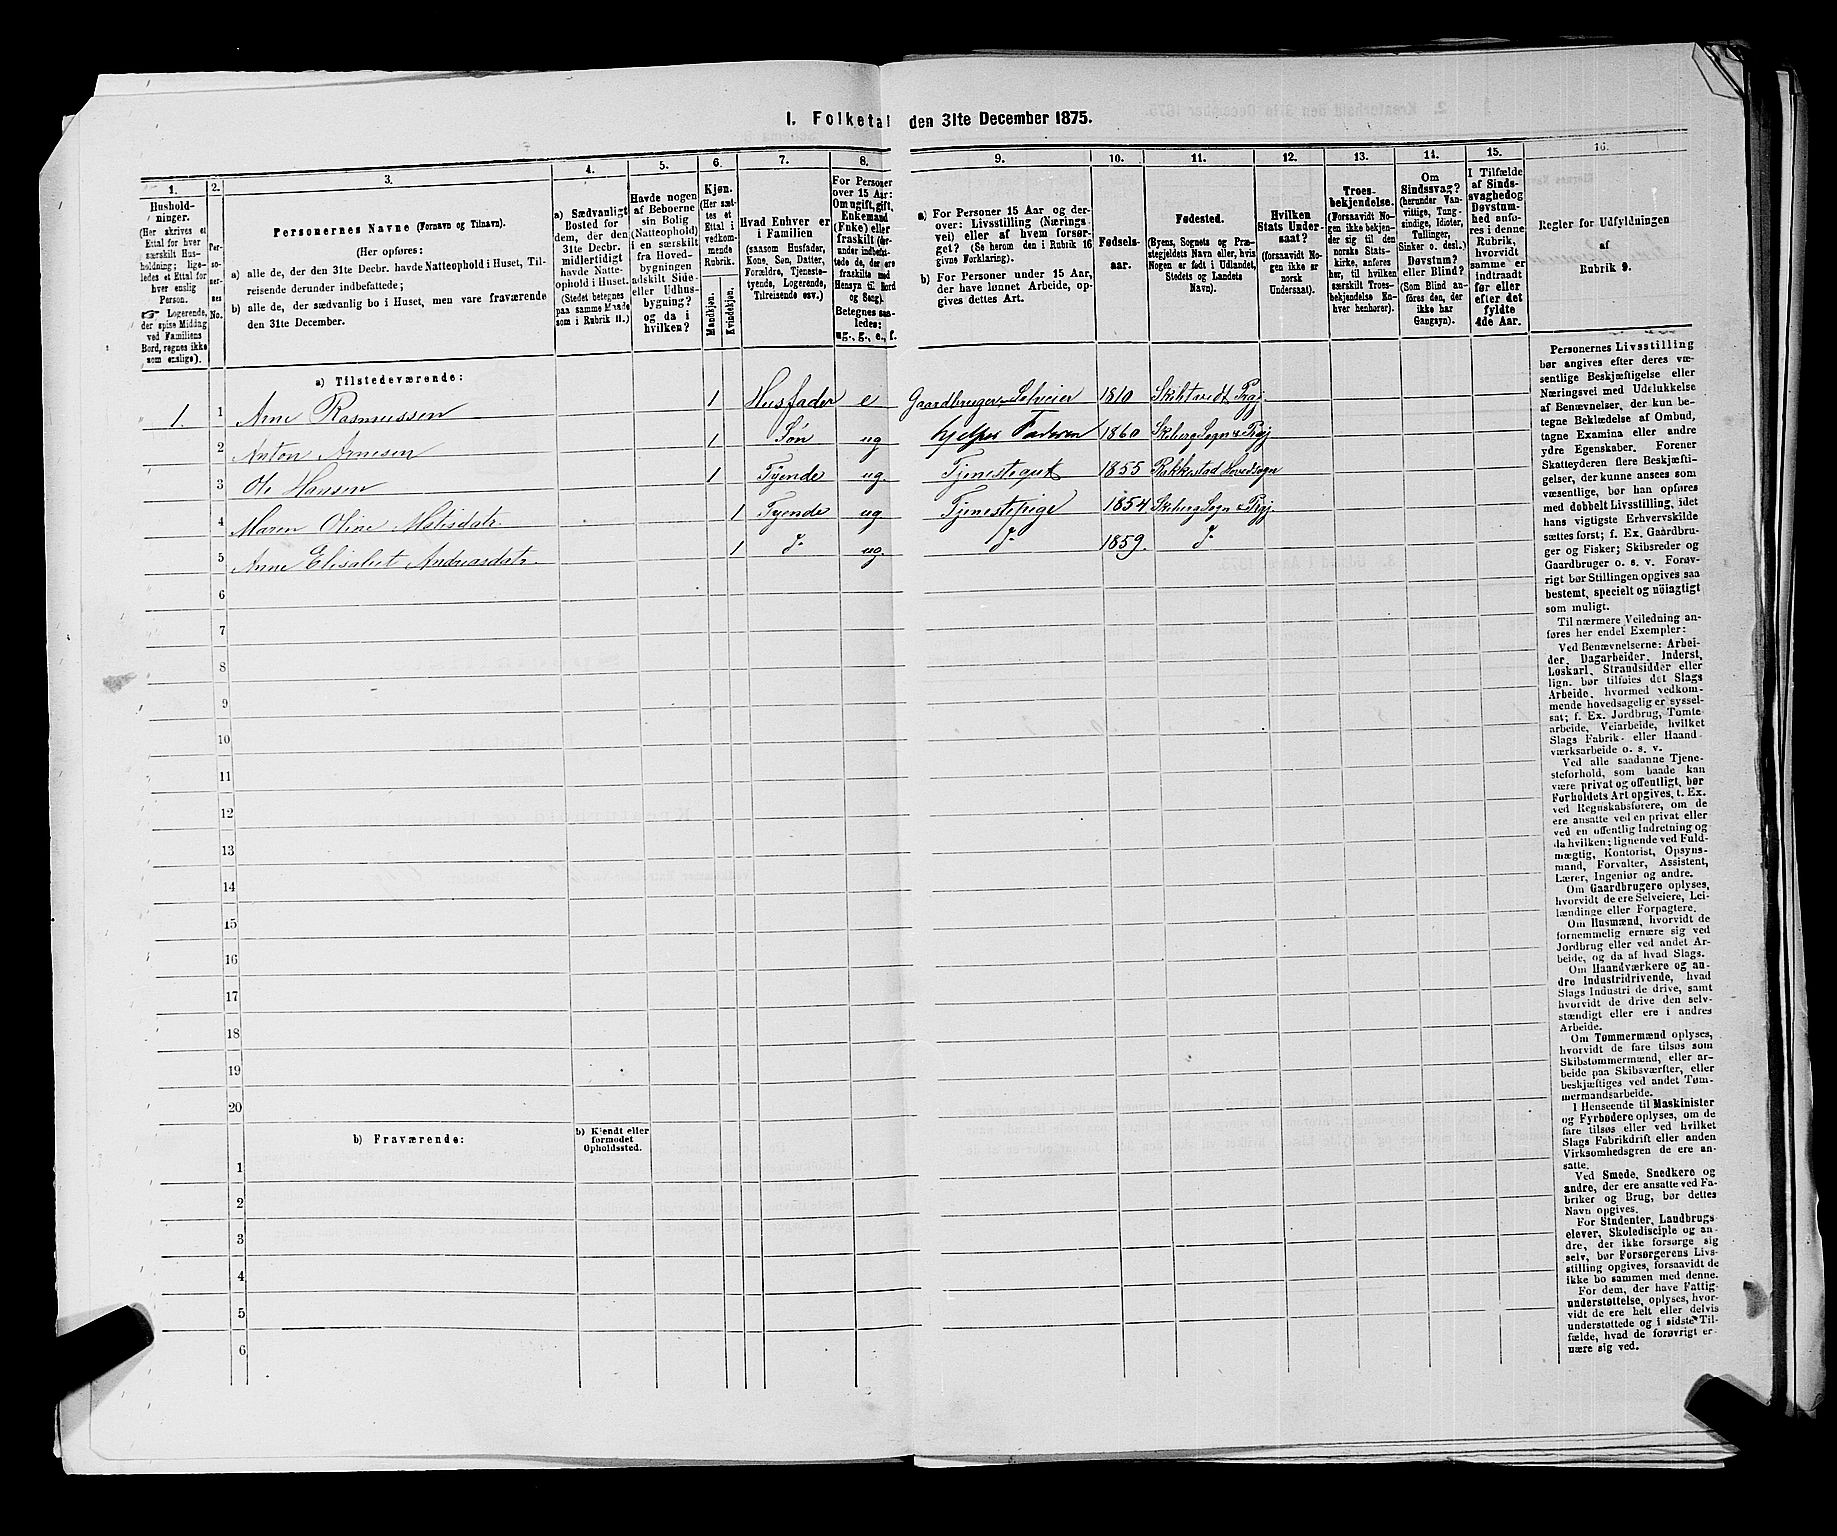 I. Folketal den 31te December 1875.
1.
Hushold-
ninger.
(Her skrives et
Ettal for hver
særskilt Hus-
holdning; lige-
ledes et Ettal for
hver enslig
Person.
☞ Logerende,
der spise Middag
ved Familiens
Bord, regnes ikke
som enslige).
2.
Per-
so-
ner-
nes
No.
3.
Personernes Navne (Fornavn og Tilnavn).
(Her opføres:
a) alle de, der den 31te Decbr. havde Natteophold i Huset, Til-
reisende derunder indbefattede;
b) alle de, der sædvanlig bo i Huset, men vare fraværende
den 31te December.
4.
a) Sædvanligt
Bosted for
dem, der den
31te Decbr.
midlertidigt
havde Natte-
ophold i Huset.
(Stedet betegnes
paa samme Maade
som i Rubrik 11.)
5.
Havde nogen
af Beboerne
sin Bolig
(Natteophold)
i en særskilt
fra Hoved-
bygningen
adskilt Side-
eller Udhus-
bygning?
og da i
hvilken?
6.
Kjøn.
(Her sæt-
tes et
Ettal i
vedkom-
mende
Rubrik.
Mandkjøn.
Kvindekjøn.
7.
Hvad Enhver er
i Familien
(saasom Husfader,
Kone, Søn, Datter,
Forældre, Tjeneste-
tyende, Logerende,
Tilreisende osv.)
8.
For Personer
over 15 Aar:
Om ugift, gift,
Enkemand
(Enke) eller
fraskilt (her-
under indbefat-
tede de, der ere
fraskilte med
Hensyn til Bord
og Seng).
Betegnes saa-
ledes:
ug., g., e., f.
9.
a) For Personer 15 Aar og der-
over: Livsstilling (Nærings-
vei) eller af hvem forsør-
get? (Se herom den i Rubrik 16
givne Forklaring).
b) For Personer under 15 Aar,
der have lønnet Arbeide, op-
gives dettes Art.
10.
Fødsels-
aar.
11.
Fødested.
(Byens, Sognets og Præ-
stegjeldets Navn eller, hvis
Nogen er født i Udlandet,
Stedets og Landets
Navn).
12.
Hvilken
Stats Under-
saat?
(forsaavidt No-
gen ikke er
norsk
Undersaat).
13.
Troes-
bekjendelse.
(Forsaavidt No-
gen ikke bekjen-
der sig til den
norske Stats-
kirke, anføres
her, til hvilken
særskilt Troes-
bekjendelse En-
hver henhører).
14.
Om
Sindssvag?
(herunder Van-
vittige, Tung-
sindige, Idioter,
Tullinger,
Sinker o. desl.)
Døvstum?
eller Blind?
(Som Blind an-
føres den, der
ikke har
Gangsyn).
15.
I Tilfælde
af Sinds-
svaghed og
Døvstum-
hed anfø-
res i denne
Rubrik,
hvorvidt
samme er
indtraadt
før eller
efter det
fyldte
4de Aar.
16.
Regler for Udfyldningen
af
Rubrik 9.
a) Tilstedeværende:
1. 1 Arne Rasmussen 1 Husfader e Gaardbruger Selveier 1810 Skibtvedt Prgj.
2 Anton Arnesen 1 Søn ug hjelper Faderen 1860 Skeberg Sogn & Prgj
3 Ole Hansen 1 Tyende ug. Tjenestegut 1855 Rakkestad Hovedsogn
4 Maren Oline Matisdatr. 1 Tyende ug Tjenestepige 1854 Skeberg Sogn & Prgj.
5 Anne Elisabet Andreasdatr. 1 do ug. do 1859. do
6
7
8
9
10
11
12
13
14
15
16
17
18
19
20
b) Fraværende:
b) Kjendt eller
formodet
Opholdssted.
1
2
3
4
5
6
Personernes Livsstilling
bør angives efter deres væ-
sentlige Beskjæftigelse eller
Næringsvei med Udelukkelse
af Benævnelser, der kun be-
tegne Beklædelse af Ombud,
tagne Examina eller andre
ydre Egenskaber. Forener
Skatteyderen flere Beskjæfti-
gelser, der kunne ansees som
væsentlige, bør han opføres
med dobbelt Livsstilling, idet
hans vigtigste Erhvervskilde
sættes først; f. Ex. Gaardbru-
ger og Fisker; Skibsreder og
Gaardbruger o. s. v. Forøv-
rigt bør Stillingen opgives saa
bestemt, specielt og nöiagtigt
som muligt.
Til nærmere Veiledning an-
føres her endel Exempler:
Ved Benævnelserne: Arbei-
der, Dagarbeider, Inderst,
Løskarl, Strandsidder eller
lign. bør tilføies det Slags
Arbeide, hvormed vedkom-
mende hovedsagelig er syssel-
sat; f. Ex. Jordbrug, Tomte-
arbeide, Veiarbeide, hvilket
Slags Fabrik- eller Haand-
værksarbeide o. s. v.
Ved alle saadanne Tjene-
steforhold, som baade kan
være privat og offentligt, bør
Forholdets Art opgives, t. Ex.
ved Regnskabsførere, om de
ere ansatte ved en privat eller
ved en offentlig Indretning og
da hvilken; lignende ved Fuld-
mægtig, Kontorist, Opsyns-
mand, Forvalter, Assistent,
Lærer, Ingeniør og andre.
Om Gaardbrugere oplyses,
hvorvidt de ere Selveiere, Lei-
lændinge eller Forpagtere.
Om Husmænd, hvorvidt de
fornemmelig ernære sig ved
Jordbrug eller ved andet Ar-
beide, og da af hvad Slags.
Om Haandværkere og an-
dre Industridrivende, hvad
Slags Industri de drive, samt
hvorvidt de drive den selv-
stændigt eller ere i andres
Arbeide.
Om Tømmermænd oplyses,
hvorvidt de fare tilsøs som
Skibstømmermænd, eller ar-
beide paa Skibsværfter, eller
beskjæftiges ved andet Tøm-
mermandsarbeide.
I Henseende til Maskinister
og Fyrbødere oplyses, om de
fare tilsøs eller ved hvilket
Slags Fabrikdrift eller anden
Virksomhedsgren de ere an-
satte.
Ved Smede, Snedkere og
andre, der ere ansatte ved Fa-
briker og Brug, bør dettes
Navn opgives.
For Studenter, Landbrugs-
elever, Skoledisciple og an-
dre, der ikke forsørge sig
selv, bør Forsørgerens Livs-
stilling opgives, forsaavidt de
ikke bo sammen med denne.
For dem, der have Fattig-
understøttelse, oplyses, hvor-
vidt de ere helt eller delvis
understøttede og i sidste Til-
fælde, hvad de forøvrigt er-
nære sig ved.